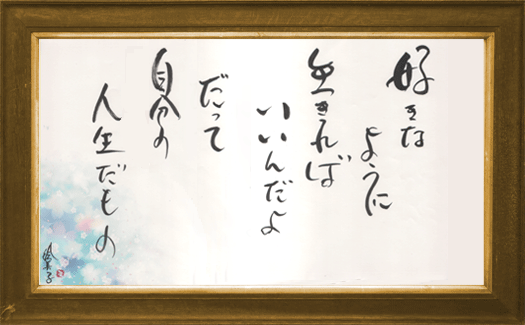 好きな
ように
生きれば
いいんだよ
だって
自分の
人生だもの